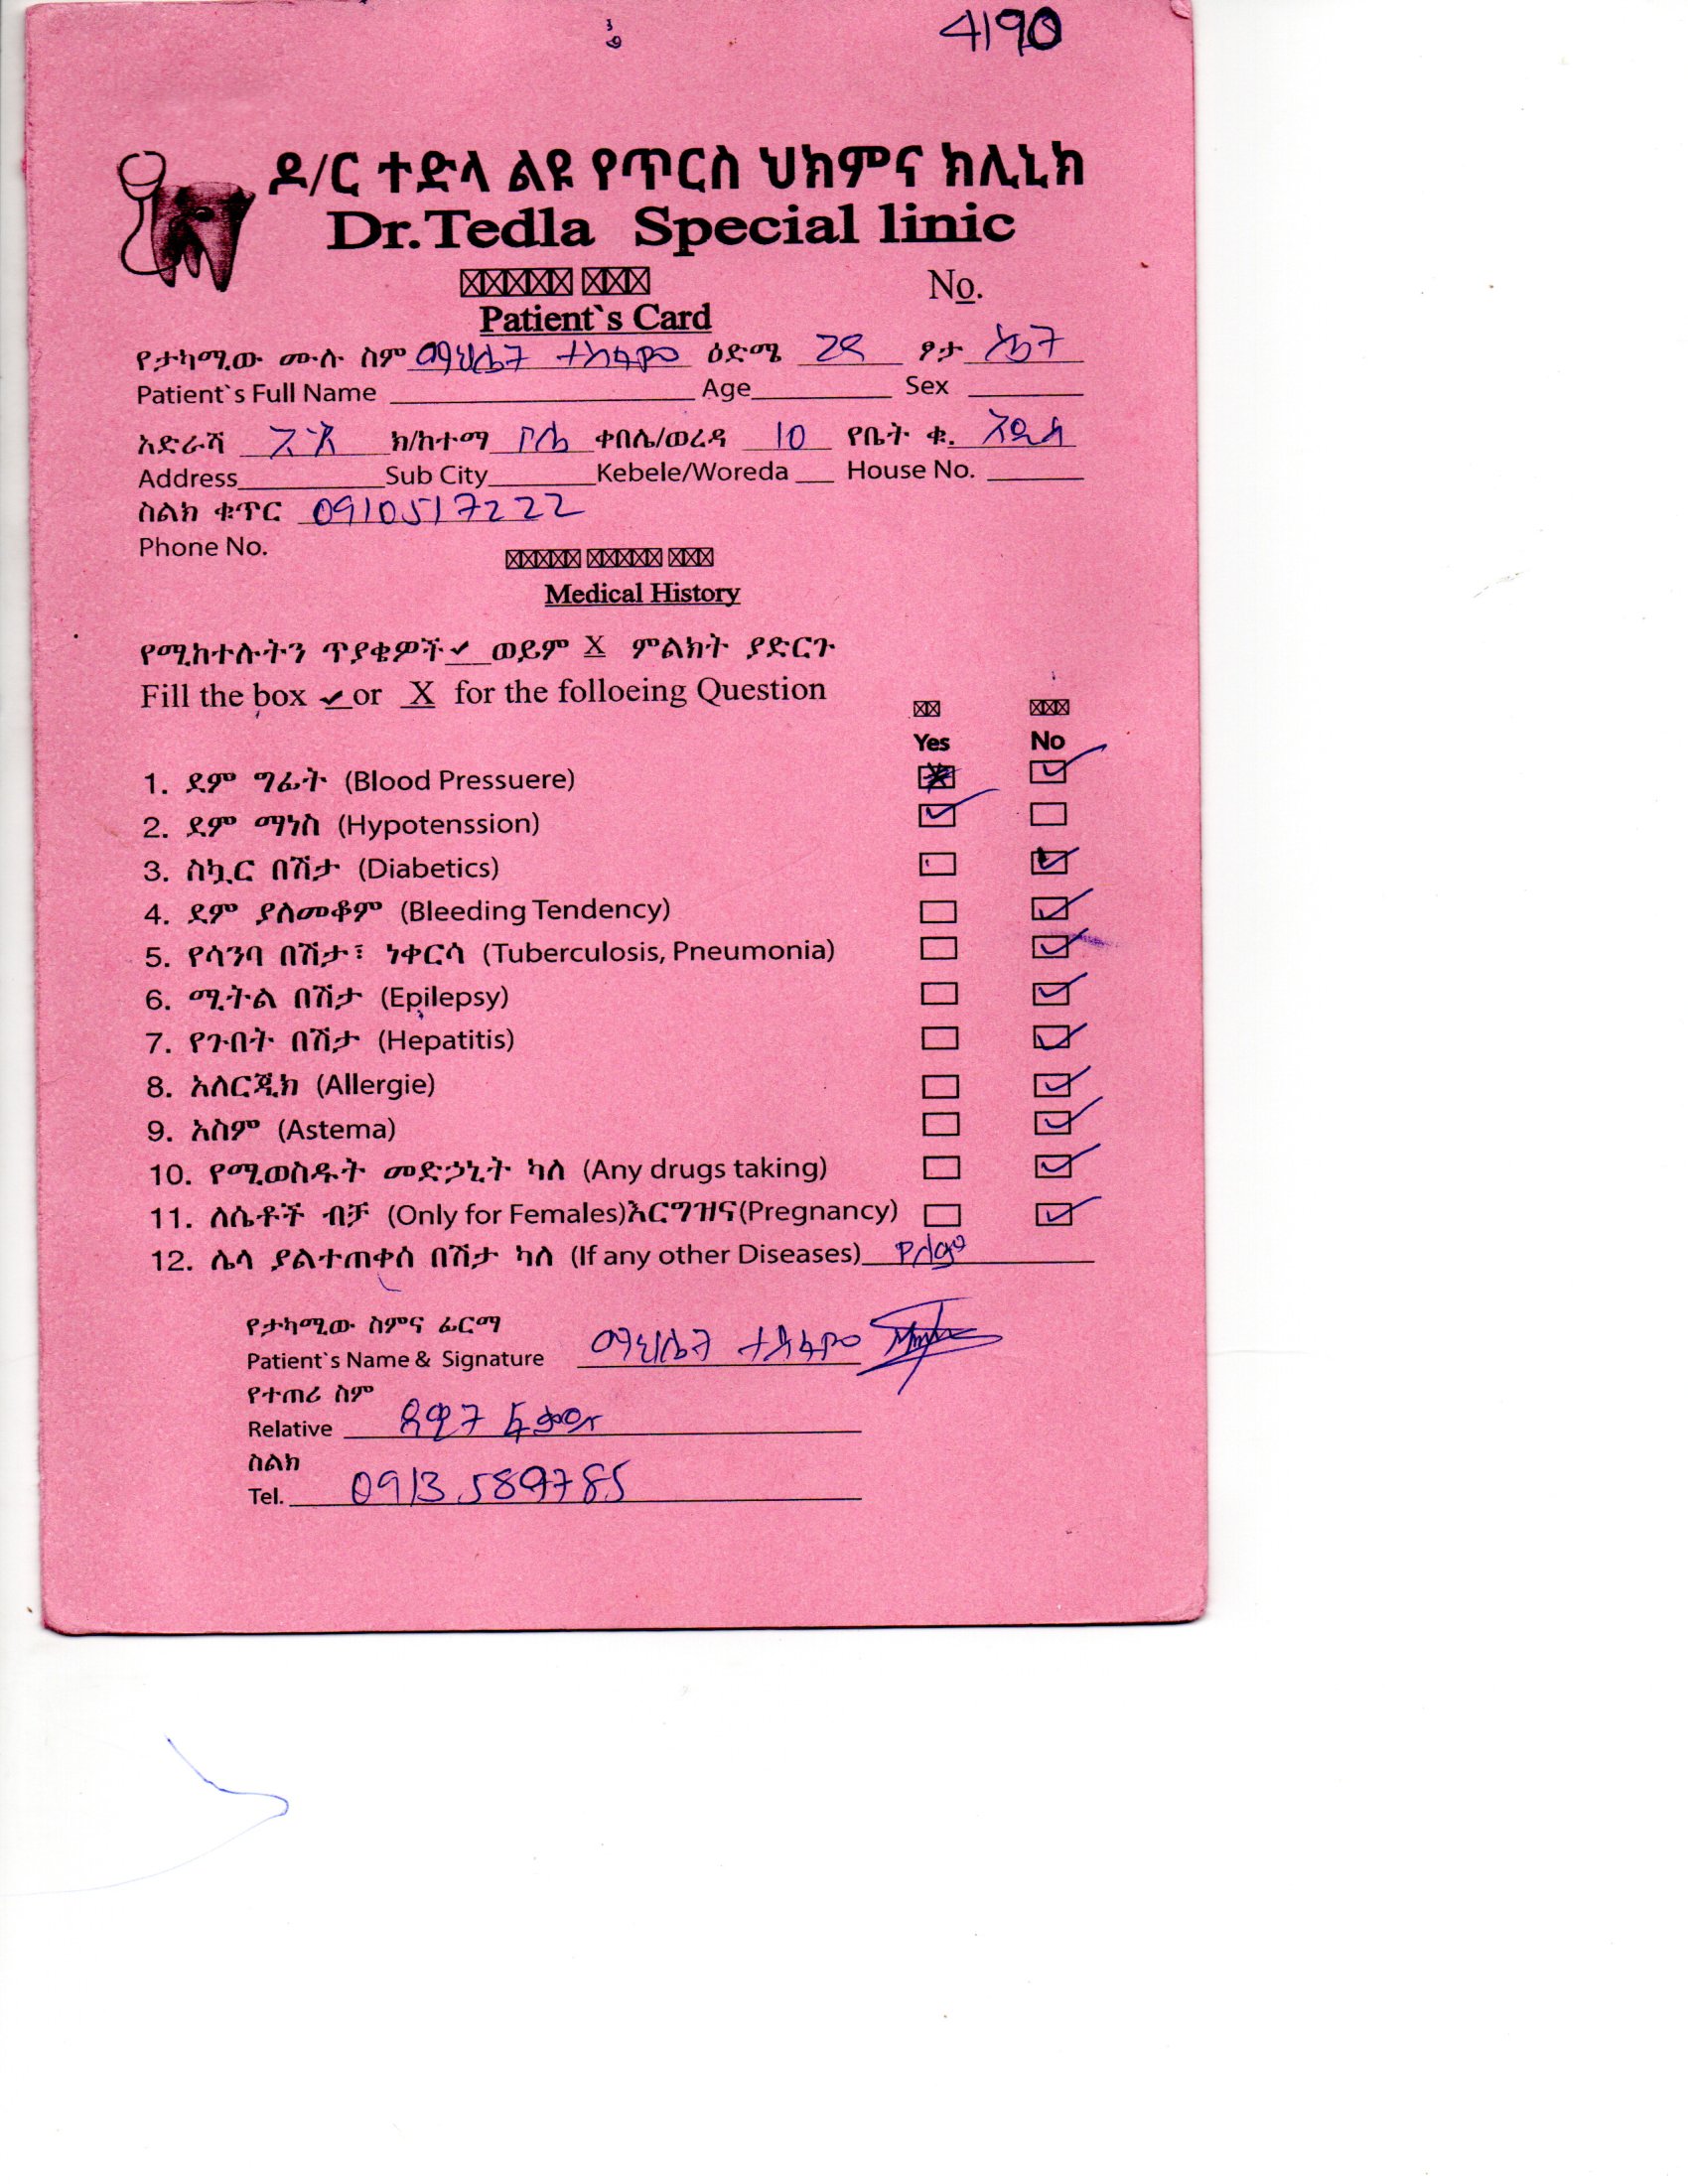 4190
ዶ/ር ተድላ ልዩ የጥርስ ህክምና ክሊኒክ
Dr.Tedla Special linic
No.
Patient`s Card
የታካሚው ሙሉ ስም ማህሌት ዕድሜ 28 ፆታ ሴት
Patient`s Full Name Age Sex
አድራሻ አ.አ ክ/ከተማ ቦሌ ቀበሌ/ወረዳ 10 የቤት ቁ. አዲስ
Address Sub City Kebele/Woreda House No.
ስልክ ቁጥር 0910517222
Phone No.
Medical History
የሚከተሉትን ጥያቄዎች ✓ ወይም X ምልክት ያድርጉ
Fill the box ✓ or X for the folloeing Question
Yes No
1. ደም ግፊት (Blood Pressuere)
2. ደም ማነስ (Hypotenssion)
3. ስኳር በሽታ (Diabetics)
4. ደም ያለመቆም (Bleeding Tendency)
5. የሳንባ በሽታ፣ ነቀርሳ (Tuberculosis, Pneumonia)
6. ሚትል በሽታ (Epilepsy)
7. የጉበት በሽታ (Hepatitis)
8. አለርጂክ (Allergie)
9. አስም (Astema)
10. የሚወስዱት መድኃኒት ካለ (Any drugs taking)
11. ለሴቶች ብቻ (Only for Females)እርግዝና(Pregnancy)
12. ሌላ ያልተጠቀሰ በሽታ ካለ (If any other Diseases) የለም
የታካሚው ስምና ፊርማ
Patient`s Name & Signature ማህሌት
የተጠሪ ስም
Relative ዳዊት
ስልክ
Tel. 0913589785